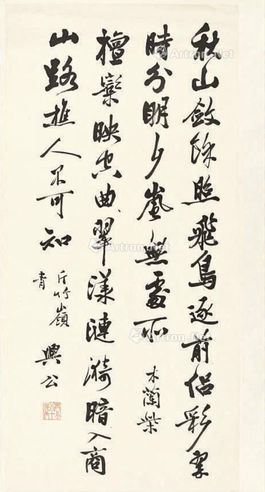 秋山敛餘照飛鳥逐前侣彩翠
時分明夕嵐無處所 木蘭柴
檀欒映空曲翠漾漣漪暗入商
山路樵人不可知 斤竹嶺
青 興公